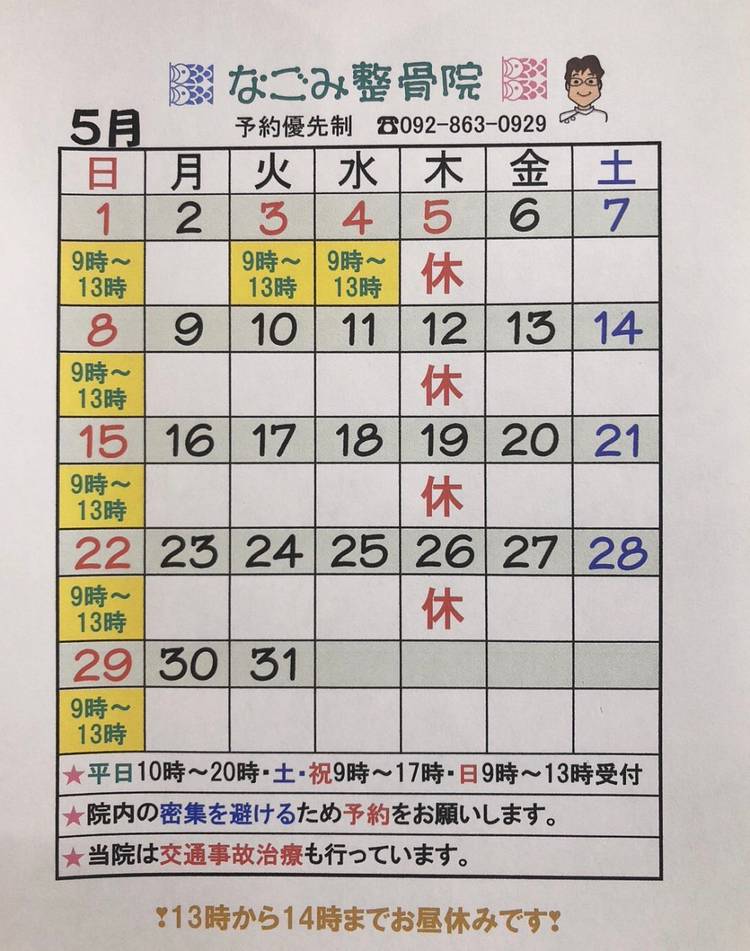 なごみ整骨院
5月 予約優先制 ☎092-863-0929
日 月 火 水 木 金 土
1 2 3 4 5 6 7
9時～ 9時～ 9時～ 休
13時 13時 13時
8 9 10 11 12 13 14
9時～ 休
13時
15 16 17 18 19 20 21
9時～ 休
13時
22 23 24 25 26 27 28
9時～ 休
13時
29 30 31
9時～
13時
★平日10時～20時・土・祝9時～17時・日9時～13時受付
★院内の密集を避けるため予約をお願いします。
★当院は交通事故治療も行っています。
❣13時から14時までお昼休みです❣